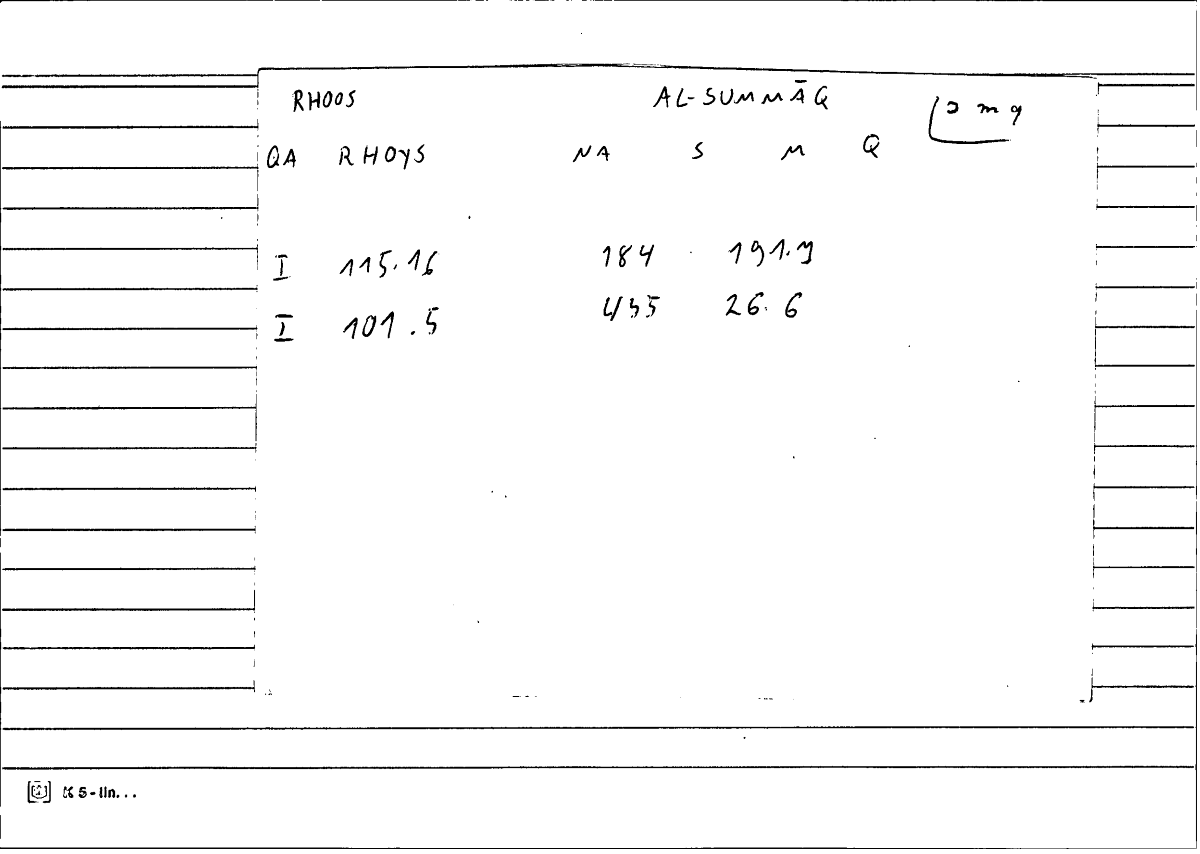 RHOOS AL-SUMMĀQ
QA RHOYS NA S M Q
I 115.16 184 191.9
I 101.5 435 26.6
K 5-lin...